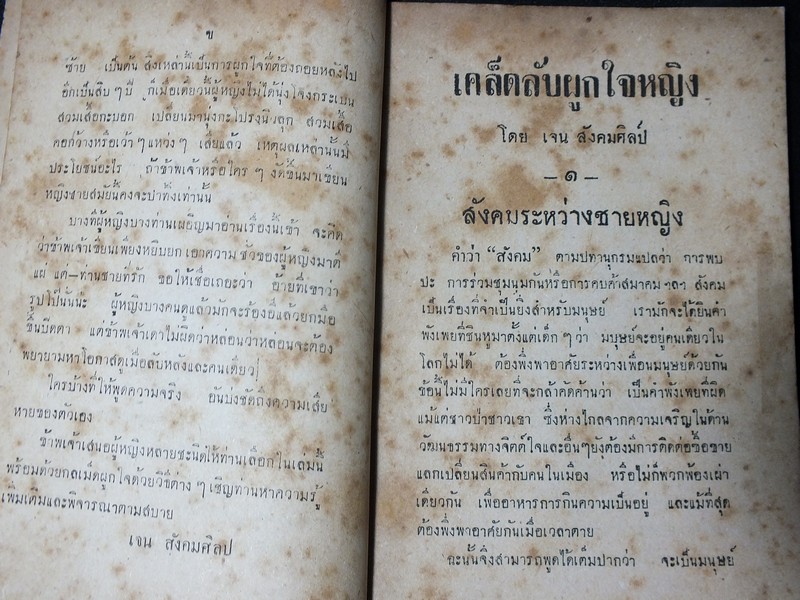 ข
ซ้าย เป็นต้น สิ่งเหล่านี้เป็นการผูกใจที่ต้องถอยหลังไป
อีกเป็นสิบ ๆ ปี ก็เมื่อเดี๋ยวนี้ผู้หญิงไม่ได้นุ่งโจงกระเบน
สวมเสื้อกะบอก เปลี่ยนมานุ่งกะโปรงนิวลุก สวมเสื้อ
คอกว้างหรือเว้า ๆ แหว่ง ๆ เสียแล้ว เหตุผลเหล่านั้นมี
ประโยชน์อะไร ถ้าข้าพเจ้าหรือใคร ๆ งัดขึ้นมาเขียน
หญิงชายสมัยนี้คงจะปาทิ้งเท่านั้น
บางทีผู้หญิงบางท่านเผอิญมาอ่านเรื่องนี้เข้า จะคิด
ว่าข้าพเจ้าเขียนเพียงหยิบยก เอาความชั่วของผู้หญิงมาตี
แผ่ แต่—ท่านชายที่รัก ขอให้เชื่อเถอะว่า อ้ายที่เขาว่า
รูปโป๊นั้นน่ะ ผู้หญิงบางคนดูแล้วมักจะร้องอี๋แล้วยกมือ
ขึ้นปิดตา แต่ข้าพเจ้าเดาไม่ผิดว่าหล่อนว่าหล่อนจะต้อง
พยายามหาโอกาสดูเมื่อลับหลังและคนเดียว
ใครบ้างที่ให้พูดความจริง อันบ่งชัดถึงความเสีย
หายของตัวเอง
ข้าพเจ้าเสนอผู้หญิงหลายชะนิดให้ท่านเลือกในเล่มนี้
พร้อมด้วยกลเม็ดผูกใจด้วยวิธีต่าง ๆ เชิญท่านหาความรู้
เพิ่มเติมและพิจารณาตามสบาย
เจน สังคมศิลป
เคล็ดลับผูกใจหญิง
โดย เจน สังคมศิลป์
— ๑ —
สังคมระหว่างชายหญิง
คำว่า “สังคม” ตามปทานุกรมแปลว่า การพบ
ปะ การร่วมชุมนุมกันหรือการคบค้าสมาคม ฯลฯ สังคม
เป็นเรื่องที่จำเป็นยิ่งสำหรับมนุษย์ เรามักจะได้ยินคำ
พังเพยที่ชินหูมาตั้งแต่เด็ก ๆ ว่า มนุษย์จะอยู่คนเดียวใน
โลกไม่ได้ ต้องพึ่งพาอาศัยระหว่างเพื่อนมนุษย์ด้วยกัน
ข้อนี้ไม่มีใครเลยที่จะกล้าคัดค้านว่า เป็นคำพังเพยที่ผิด
แม้แต่ชาวป่าชาวเขา ซึ่งห่างไกลจากความเจริญในด้าน
วัฒนธรรมทางจิตต์ใจและอื่น ๆ ยังต้องมีการติดต่อซื้อขาย
แลกเปลี่ยนสินค้ากับคนในเมือง หรือไม่ก็พวกพ้องเผ่า
เดียวกัน เพื่ออาหารการกินความเป็นอยู่ และแม้ที่สุด
ต้องพึ่งพาอาศัยกันเมื่อเวลาตาย
ฉะนั้นจึงสามารถพูดได้เต็มปากว่า จะเป็นมนุษย์